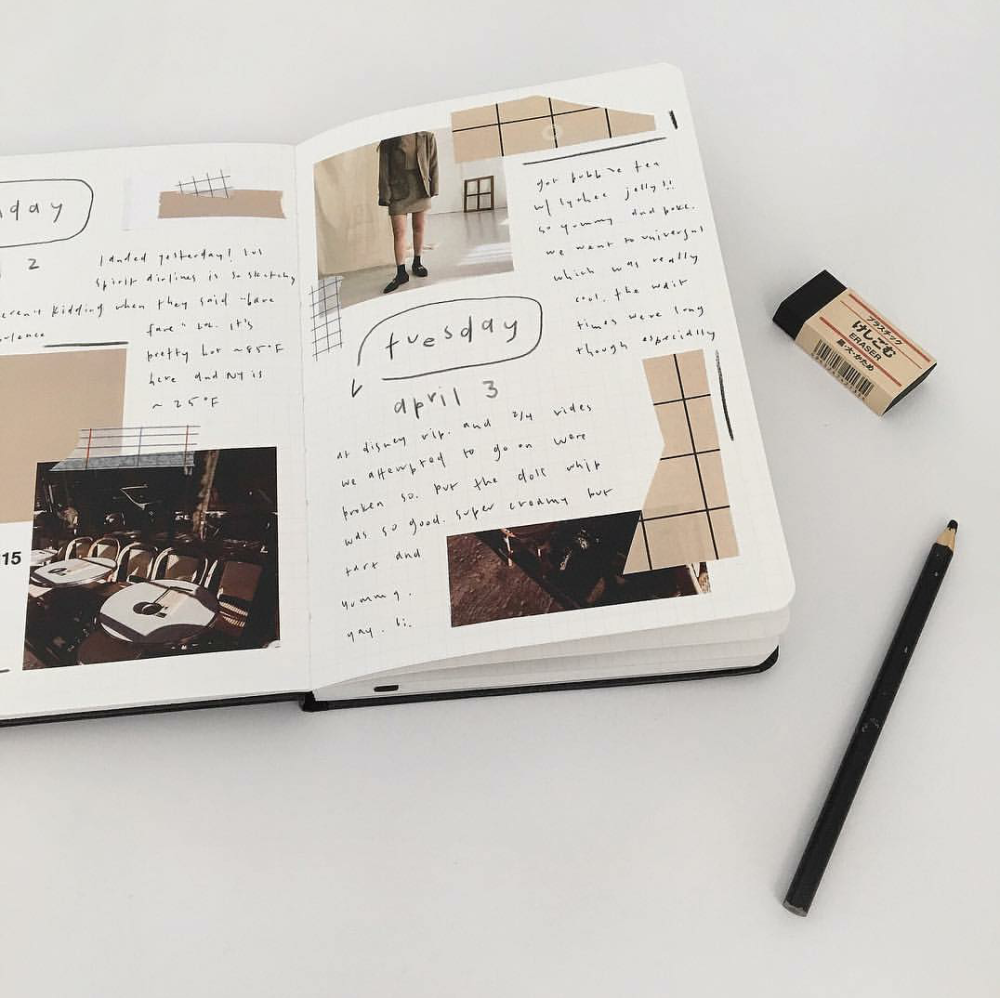 day
2
landed yesterday! but
spirit airlines is so sketchy
weren't kidding when they said "bare
fare" lol. it's
pretty hot ~85°F
here and NY is
~ 25°F
115
got bubble tea
w/ lychee jelly!!
so yummy and poke.
we went to universal
which was really
cool. the wait
times were long
though especially
tuesday
april 3
at disney rip. and 2/4 rides
we attempted to go on were
broken so. but the dole whip
was so good. super creamy but
tart and
yummy.
yay.
プラスチック
けしごむ
ERASER
黒・大・かため